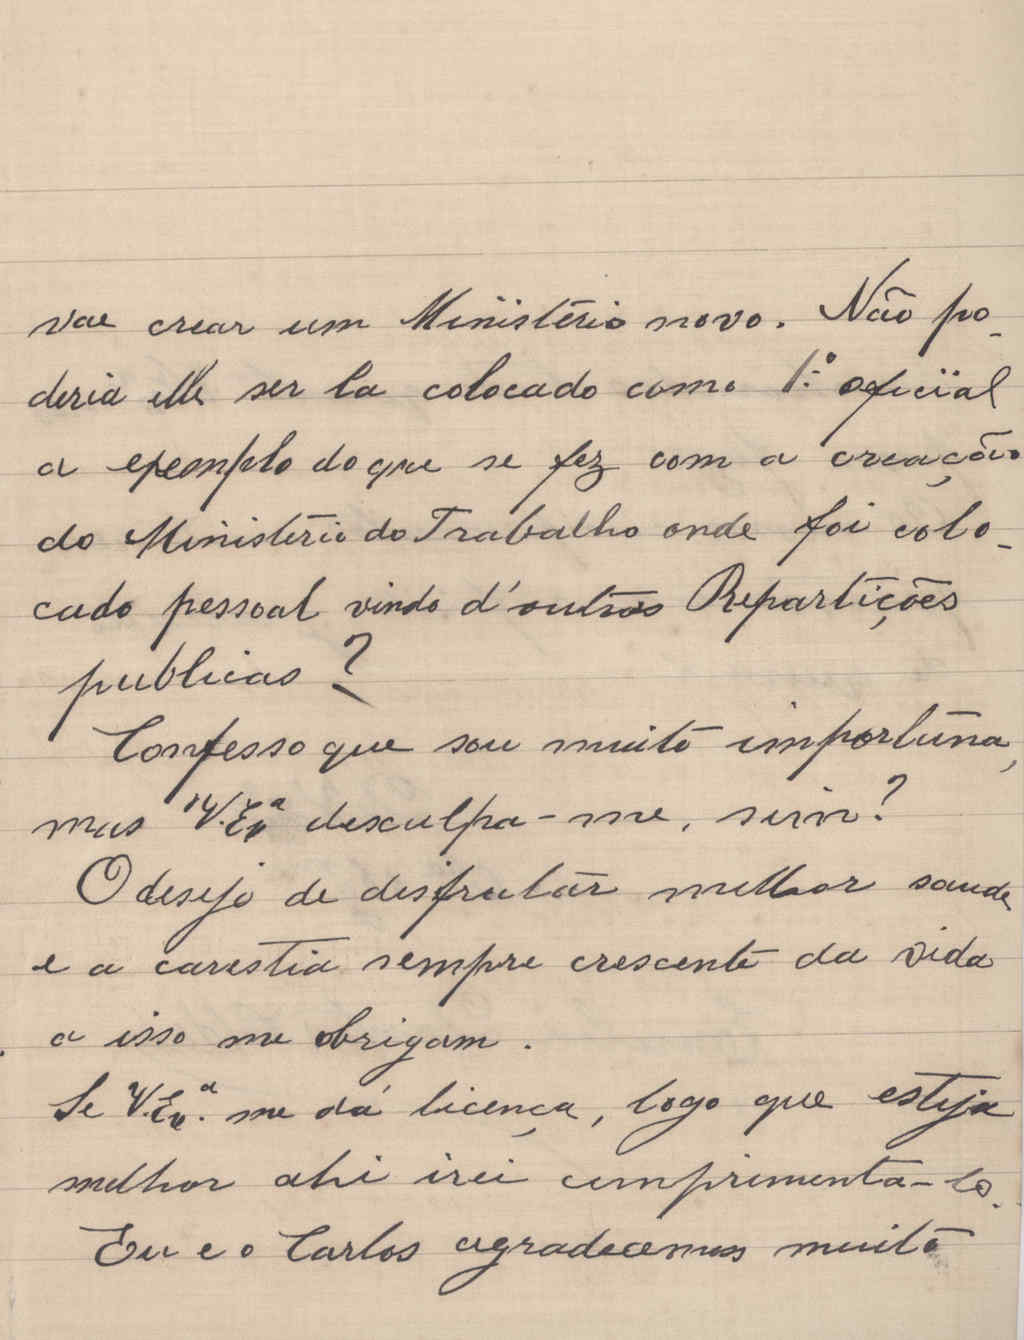 vae crear um Ministério novo. Não po-
deria elle ser la colocado como 1.º oficial
a exemplo do que se fez com a creação
do Ministério do Trabalho onde foi colo-
cado pessoal vindo d'outras Repartições
publicas?
Confesso que sou muito importuna,
mas V. Exª desculpa-me, sim?
O desejo de disfrutar melhor saude
e a carestia sempre crescente da vida
a isso me obrigam.
Se V. Exª. me dá licença, logo que esteja
melhor ahi irei cumprimenta-lo.
Eu e o Carlos agradecemos muito